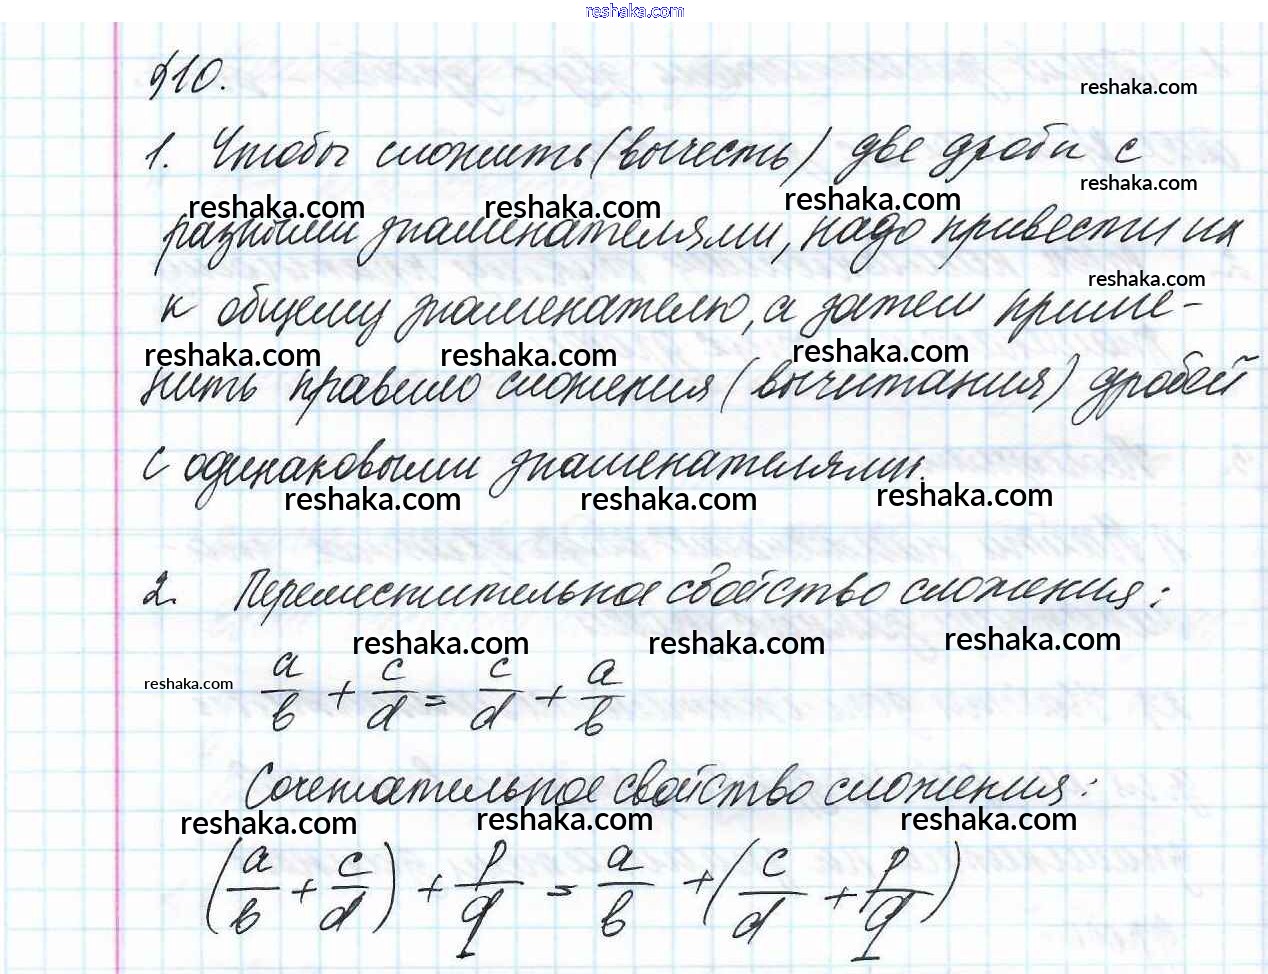 reshaka.com
§10.
reshaka.com
1. Чтобы сложить (вычесть) две дроби с
reshaka.com
reshaka.com reshaka.com reshaka.com
разными знаменателями, надо привести их
reshaka.com
к общему знаменателю, а затем приме-
reshaka.com reshaka.com reshaka.com
нить правило сложения (вычитания) дробей
с одинаковыми знаменателями.
reshaka.com reshaka.com reshaka.com
2. Переместительное свойство сложения:
reshaka.com reshaka.com reshaka.com
reshaka.com
a/b + c/d = c/d + a/b
Сочетательное свойство сложения:
reshaka.com reshaka.com reshaka.com
(a/b + c/d) + p/q = a/b + (c/d + p/q)